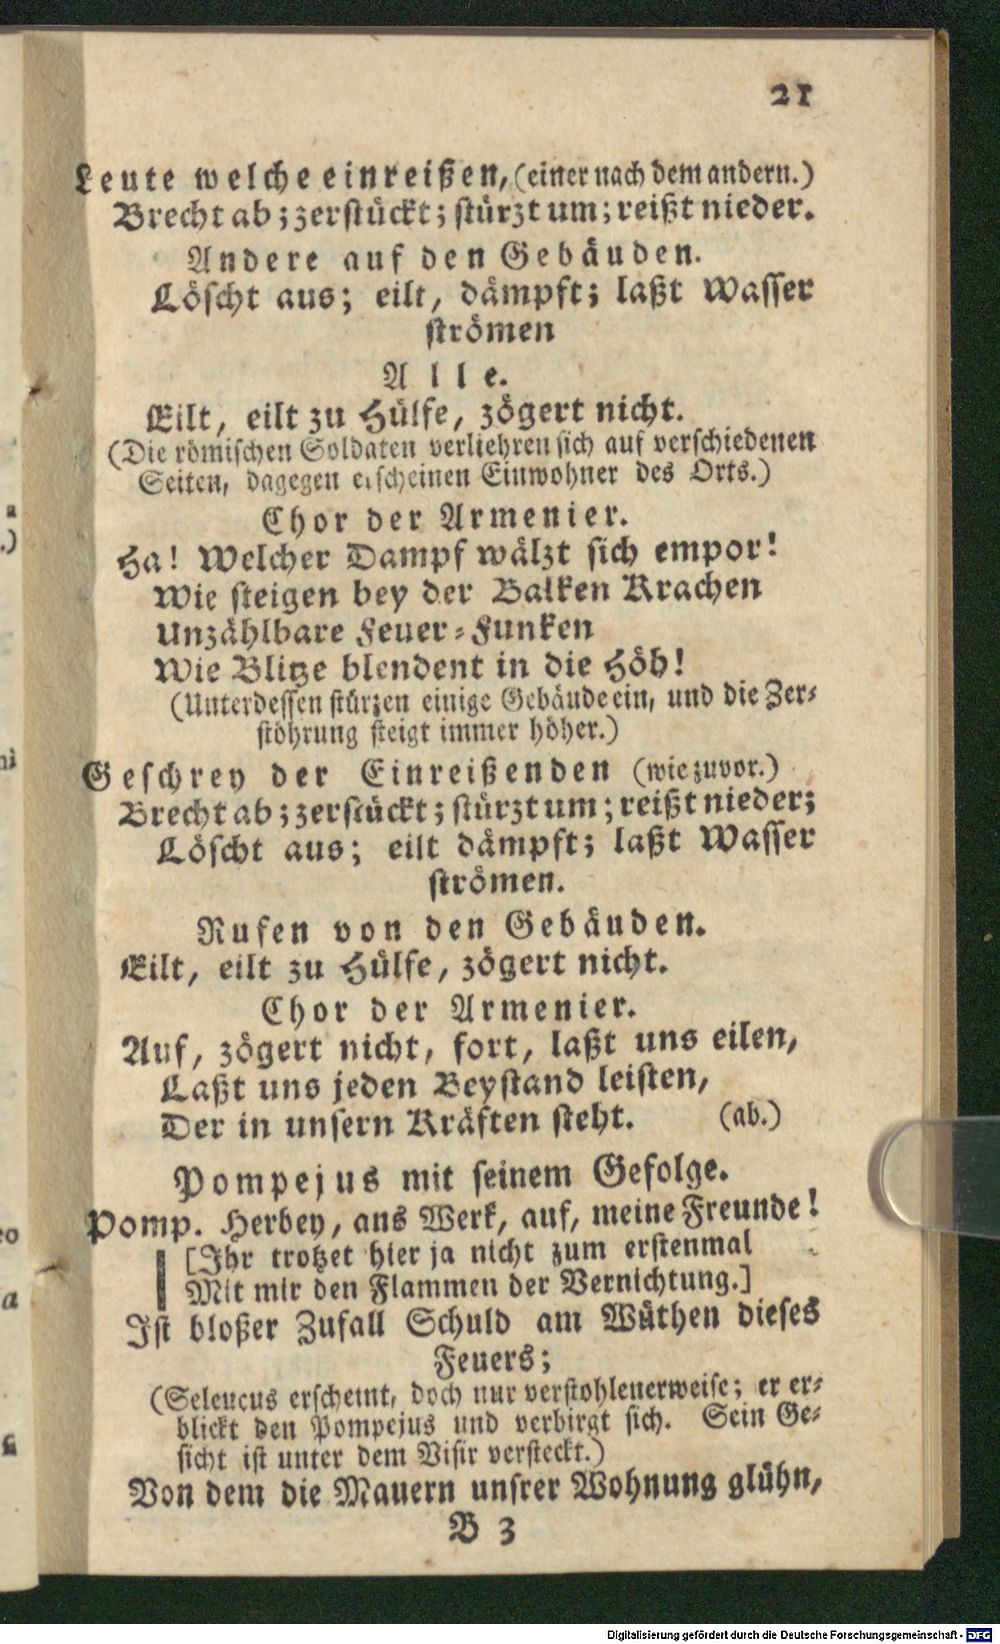 21
Leute welche einreißen, (einer nach dem andern.)
Brecht ab; zerstückt; stürzt um; reißt nieder.
Andere auf den Gebäuden.
Löscht aus; eilt, dämpft; laßt Wasser
strömen
Alle.
Eilt, eilt zu Hülfe, zögert nicht.
(Die römischen Soldaten verliehren sich auf verschiedenen
Seiten, dagegen erscheinen Einwohner des Orts.)
Chor der Armenier.
Ha! Welcher Dampf wälzt sich empor!
Wie steigen bey der Balken Krachen
Unzählbare Feuer-Funken
Wie Blitze blendent in die Höh!
(Unterdessen stürzen einige Gebäude ein, und die Zer-
stöhrung steigt immer höher.)
Geschrey der Einreißenden (wie zuvor.)
Brecht ab; zerstückt; stürzt um; reißt nieder;
Löscht aus; eilt dämpft; laßt Wasser
strömen.
Rufen von den Gebäuden.
Eilt, eilt zu Hülfe, zögert nicht.
Chor der Armenier.
Auf, zögert nicht, fort, laßt uns eilen,
Laßt uns jeden Beystand leisten,
Der in unsern Kräften steht. (ab.)
Pompejus mit seinem Gefolge.
Pomp. Herbey, ans Werk, auf, meine Freunde!
[Ihr trotzet hier ja nicht zum erstenmal
Mit mir den Flammen der Vernichtung.]
Ist bloßer Zufall Schuld am Wüthen dieses
Feuers;
(Seleucus erscheint, doch nur verstohlenerweise; er er-
blickt den Pompejus und verbirgt sich. Sein Ge-
sicht ist unter dem Visir versteckt.)
Von dem die Mauern unsrer Wohnung glühn,
B 3
Digitalisierung gefördert durch die Deutsche Forschungsgemeinschaft - DFG